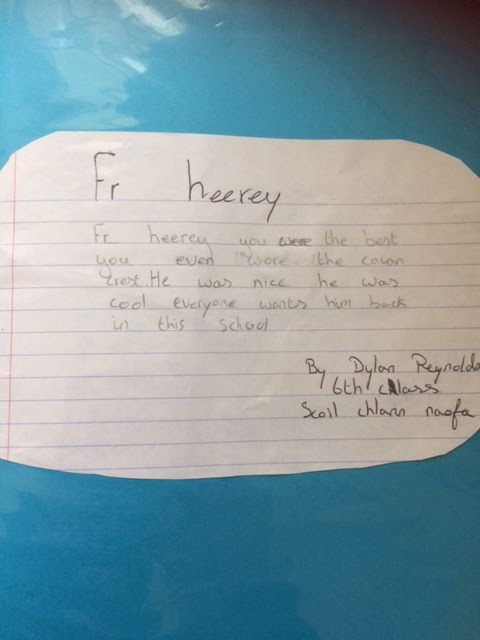 Fr heerey
Fr. heerey you were the best
you even wore the cavan
crest. He was nice he was
cool everyone wants him back
in this school
By Dylan Reynolds
6th class
Scoil chlann naofa